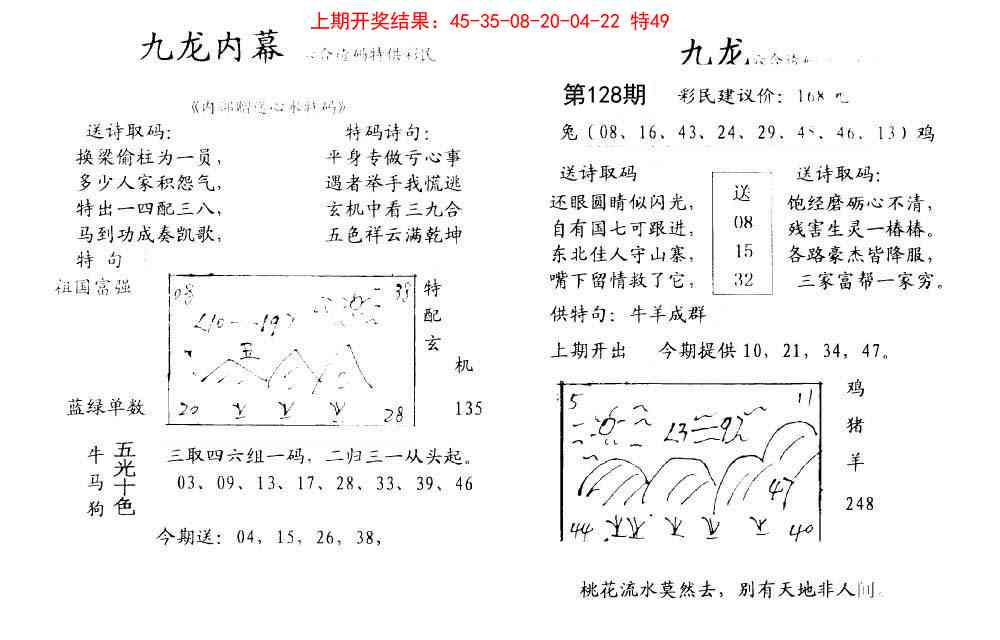 上期开奖结果：45-35-08-20-04-22 特49
九龙内幕
送诗取码：
换梁偷柱为一员，
多少人家积怨气，
特出一四配三八，
马到功成奏凯歌，
特 句
祖国富强
特码诗句：
平身专做亏心事
遇者举手我慌逃
玄机中看三九合
五色祥云满乾坤
08 38
210--19?
五
20 28
特
配
玄
机
135
蓝绿单数
牛
马
狗
五光十色
三取四六组一码，二归三一从头起。
03、09、13、17、28、33、39、46
今期送：04，15，26，38，
九龙
第128期 彩民建议价：168元
兔（08、16、43、24、29、45、46、13）鸡
送诗取码
还眼圆睛似闪光，
自有国七可跟进，
东北佳人守山寨，
嘴下留情救了它，
送
08
15
32
送诗取码：
饱经磨砺心不清，
残害生灵一椿椿。
各路豪杰皆降服，
三家富帮一家穷。
供特句：牛羊成群
上期开出 今期提供10，21，34，47。
5 11
47
44 40
鸡
猪
羊
248
桃花流水莫然去，别有天地非人间。